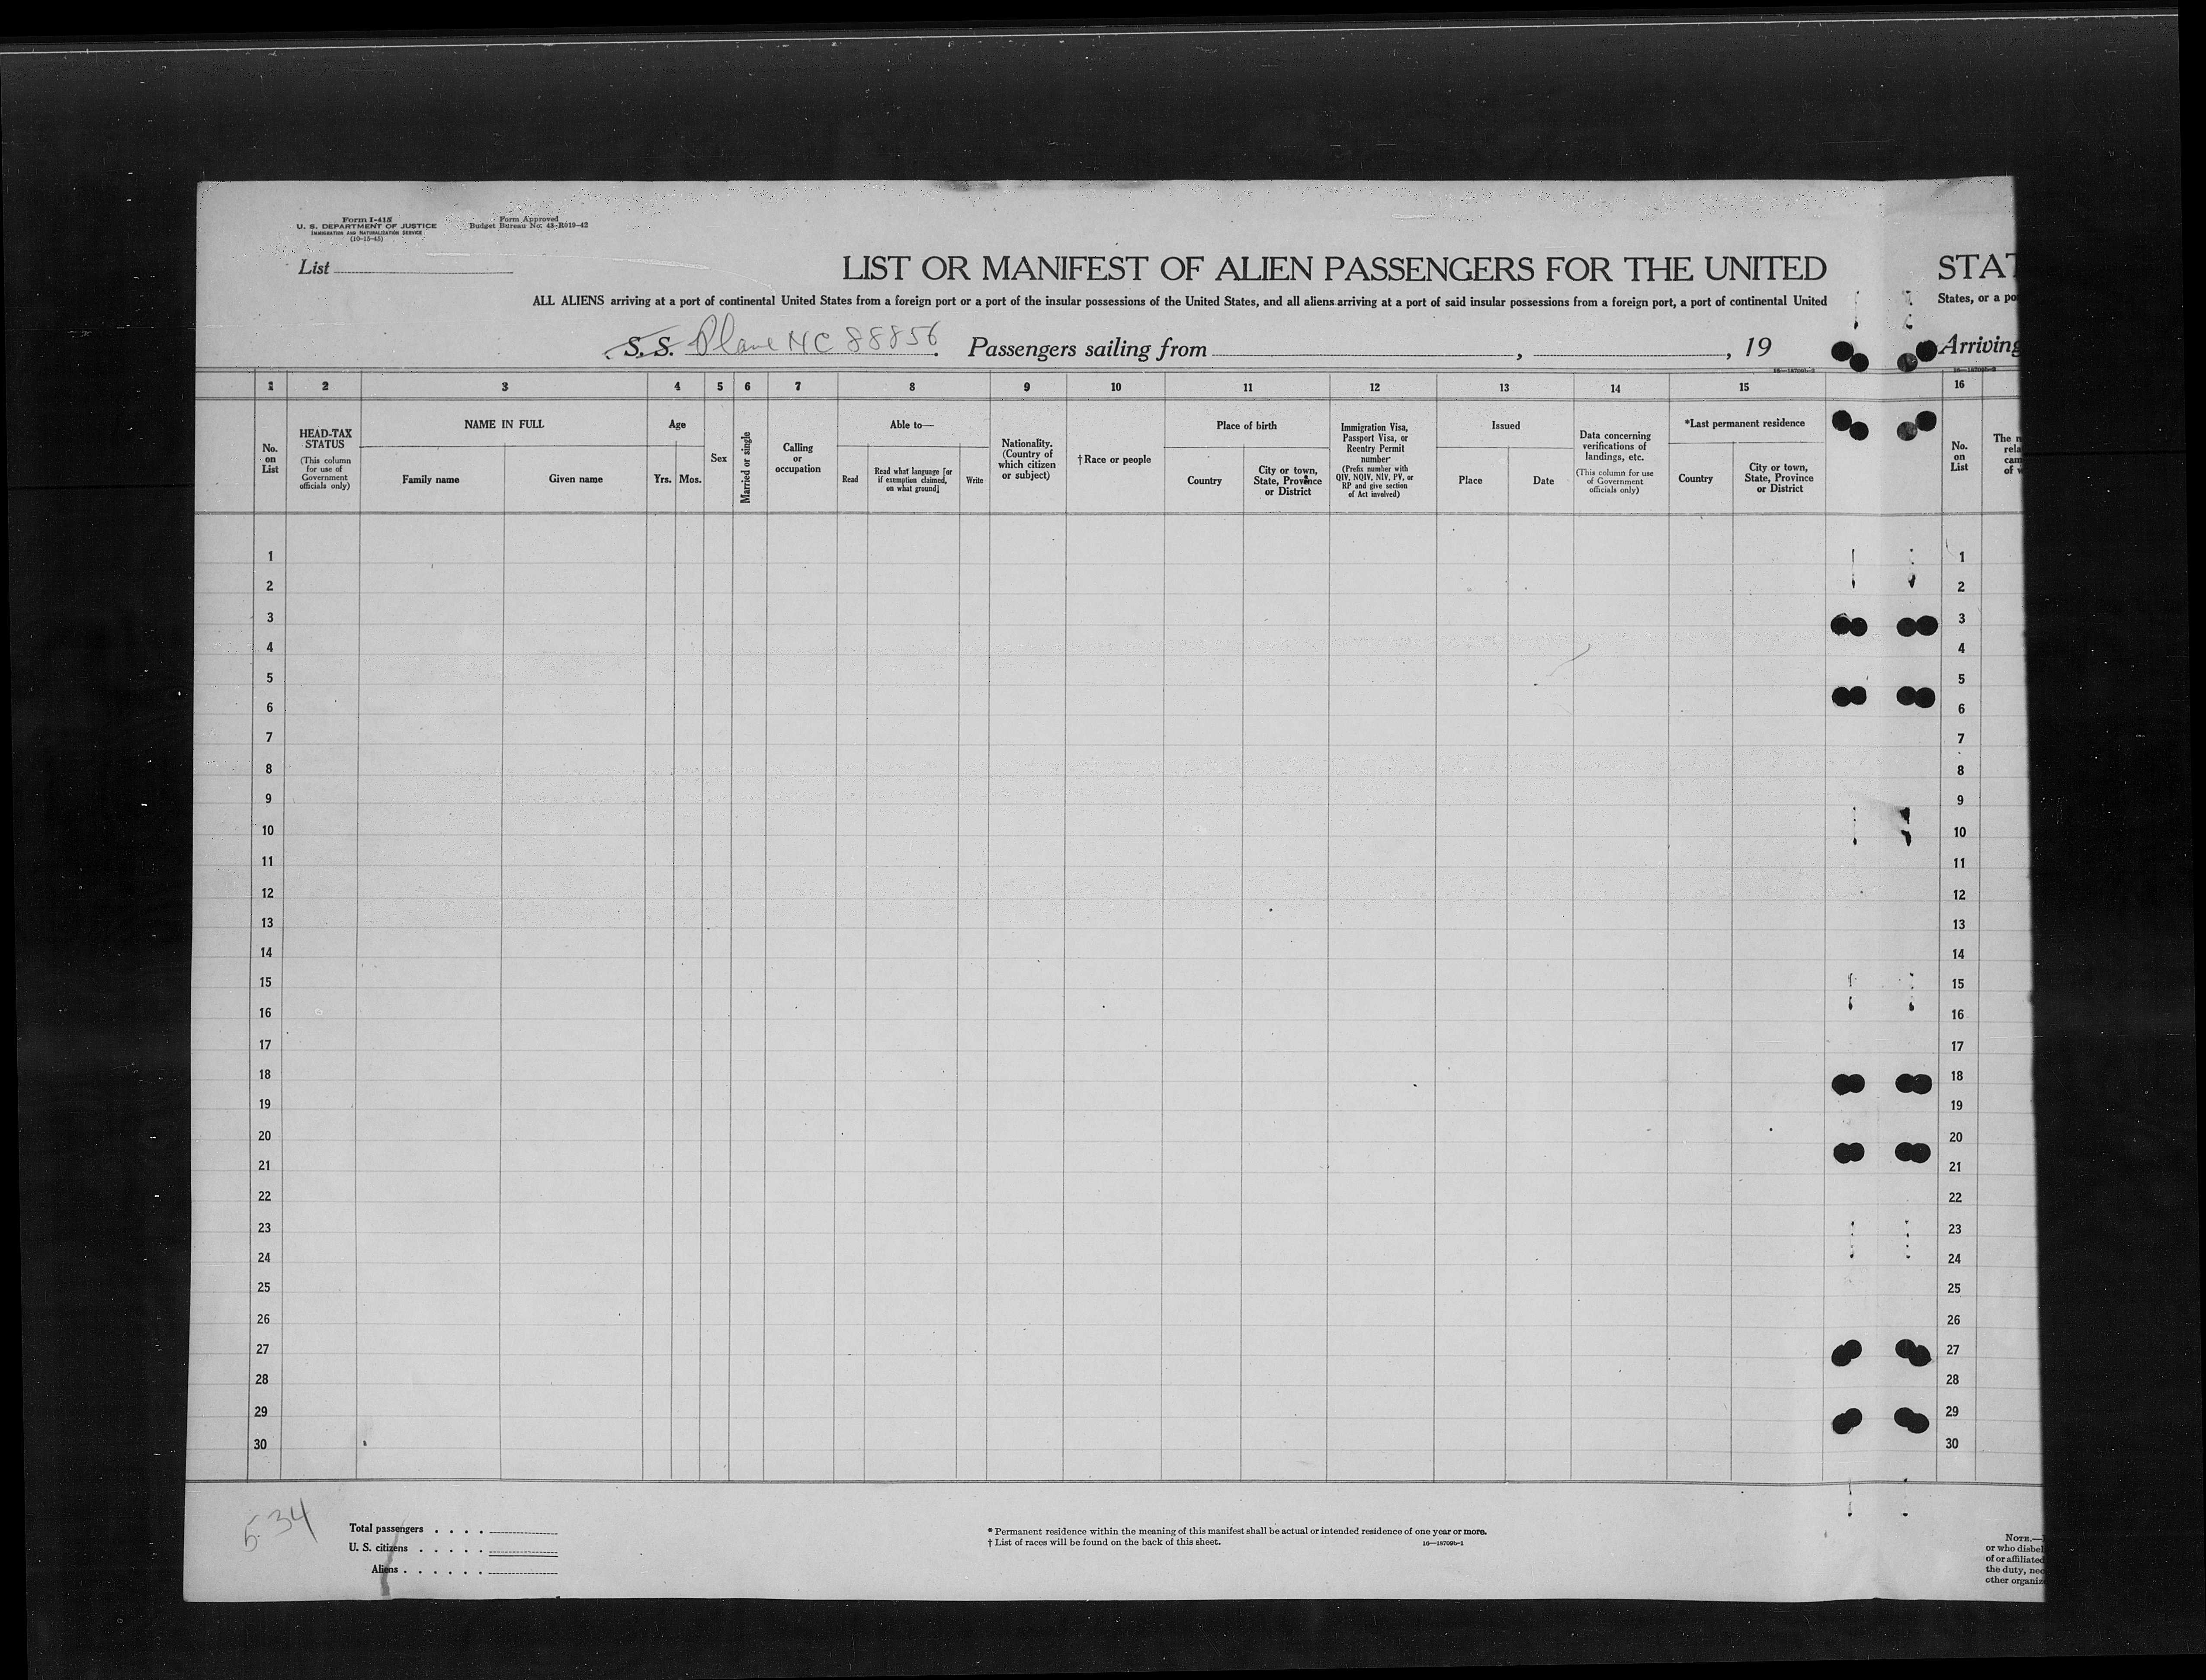 Form I-415
U. S. DEPARTMENT OF JUSTICE
IMMIGRATION AND NATURALIZATION SERVICE
(10-15-45)
Form Approved
Budget Bureau No. 43-R019-42
List
LIST OR MANIFEST OF ALIEN PASSENGERS FOR THE UNITED
STAT
ALL ALIENS arriving at a port of continental United States from a foreign port or a port of the insular possessions of the United States, and all aliens arriving at a port of said insular possessions from a foreign port, a port of continental United
States, or a po
S. S. Plane NC 88856 Passengers sailing from , , 19
Arriving
1 2 3 4 5 6 7 8 9 10 11 12 13 14 15 16
No. on List
HEAD-TAX STATUS
(This column for use of Government officials only)
NAME IN FULL
Family name
Given name
Age
Yrs. Mos.
Sex
Married or single
Calling or occupation
Able to—
Read
Read what language [or if exemption claimed, on what ground]
Write
Nationality. (Country of which citizen or subject)
†Race or people
Place of birth
Country
City or town, State, Province or District
Immigration Visa, Passport Visa, or Reentry Permit number
(Prefix number with QIV, NQIV, NIV, PV, or RP and give section of Act involved)
Issued
Place
Date
Data concerning verifications of landings, etc.
(This column for use of Government officials only)
*Last permanent residence
Country
City or town, State, Province or District
No. on List
The n
rela
cam
of w
1 1
2 2
3 3
4 4
5 5
6 6
7 7
8 8
9 9
10 10
11 11
12 12
13 13
14 14
15 15
16 16
17 17
18 18
19 19
20 20
21 21
22 22
23 23
24 24
25 25
26 26
27 27
28 28
29 29
30 30
5-34
Total passengers . . . .
U. S. citizens . . . . .
Aliens . . . . . .
* Permanent residence within the meaning of this manifest shall be actual or intended residence of one year or more.
† List of races will be found on the back of this sheet.
16—18709b-1
NOTE.—
or who disbel
of or affiliated
the duty, nec
other organiz